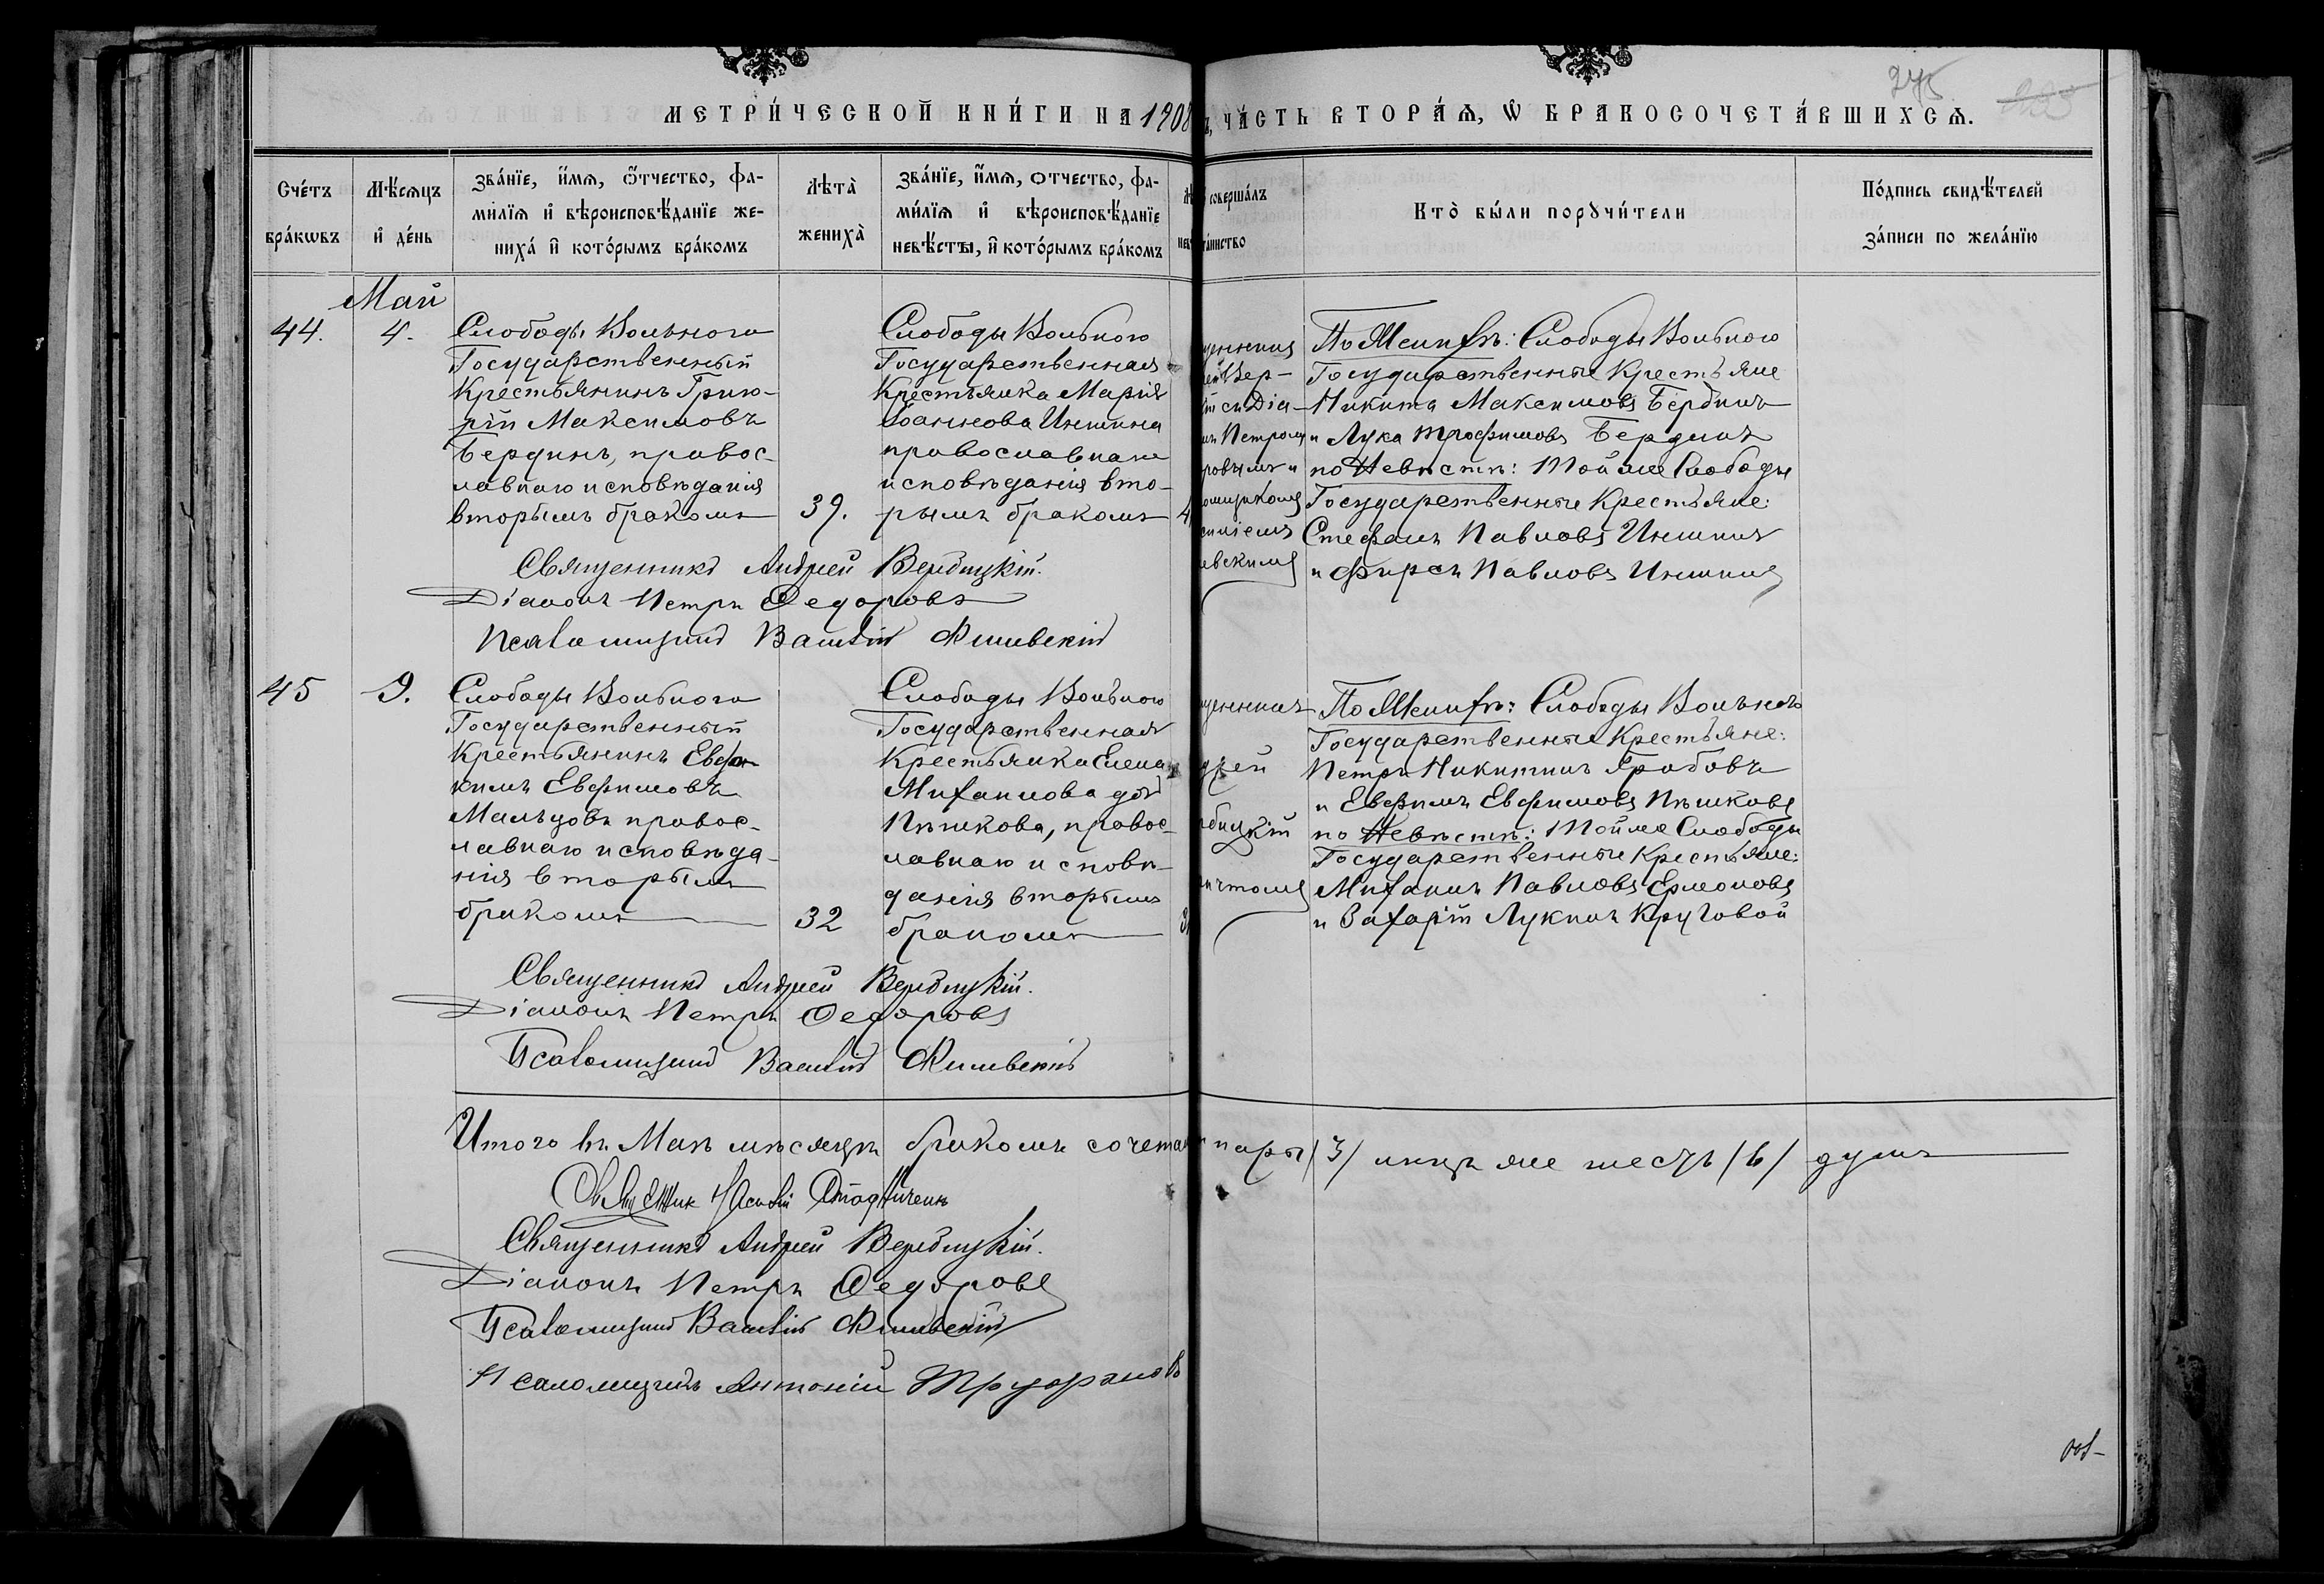 275
МЕТРИ́ЧЕСКОЙ КНИ́ГИ НА 1908
ЧА́СТЬ ВТОРА́Ѧ, Ѽ БРАКОСОЧЕТА́ВШИХСѦ.
Сче́тъ
бра́кωвъ
Мѣ́сѧцъ
и҆ де́нь
Зва́нїе, и҆́мѧ, ѻ҆́тчество, фа-
ми́лїѧ и҆ вѣроисповѣ́данїе же-
ниха́ и҆ кото́рымъ бра́комъ
Лѣта̀
жениха̀
Зва́нїе, и҆́мѧ, отчество, фа-
ми́лїѧ и҆ вѣроисповѣ́данїе
невѣ́сты, и҆ кото́рымъ бра́комъ
Лѣ
нев
соверша́лъ
та́инство
Кто̀ бы́ли порꙋчи́тели
По́дпись свидѣ́телей
за́писи по жела́нїю
Май
44.
4.
Слободы Вольного
Государственный
Крестьянинъ Григо-
рій Максимовъ
Бердинъ, правос-
лавнаго исповѣданія
вторымъ бракомъ
39.
Слободы Вольного
Государственная
Крестьянка Марія
Іоаннова Иншина
православнаго
исповѣданія вто-
рымъ бракомъ
4
щенникъ
рей Вер-
ій съ Діа-
мъ Петромъ
ровымъ и
омщикомъ
силіемъ
вскимъ
По Женихѣ: Слободы Вольного
Государственные Крестьяне
Никита Максимовъ Бердинъ
и Лука Трофимовъ Бердинъ
по Невѣстѣ: Той же Слободы
Государственные Крестьяне:
Стефанъ Павловъ Иншинъ
и Фирсъ Павловъ Иншинъ
Священникъ Андрей Вербицкій.
Діаконъ Петръ Федоровъ
Псаломщикъ Василій
45
9.
Слободы Вольного
Государственный
Крестьянинъ Евфи-
кимъ Евфимовъ
Мальцовъ правос-
лавнаго исповѣда-
нія вторымъ
бракомъ
32
Слободы Вольного
Государственная
Крестьянка Елена
Михаилова доч
Пѣшкова, правос-
лавнаго исповѣ-
данія вторымъ
бракомъ
3
щенникъ
дрей
рбицкій
ичтомъ
По Женихѣ: Слободы Вольного
Государственные Крестьяне:
Петръ Никитинъ Грабовъ
и Евфимъ Евфимовъ Пѣшковъ
по Невѣстѣ: Той же Слободы
Государственные Крестьяне:
Михаилъ Павловъ Ермоловъ
и Захарій Лукинъ Круговой
Священникъ Андрей Вербицкій.
Діаконъ Петръ Федоровъ
Псаломщикъ Василій
Итого въ Маѣ мѣсяцѣ бракомъ сочета пары /3/ лицъ же шесть /6/ душъ
Священник
Священникъ Андрей Вербицкій.
Діаконъ Петръ Федоровъ
Псаломщикъ Василій
Псаломщикъ Антоній